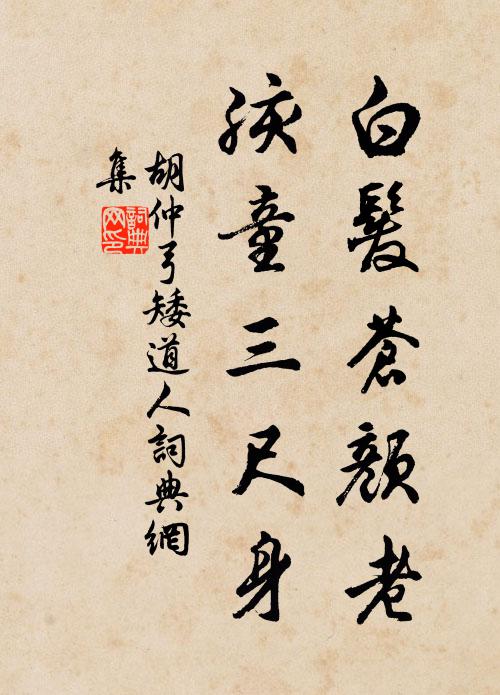 白髮蒼顏老
孩童三尺身
胡仲弓矮道人詞典網
集
詞典
网印